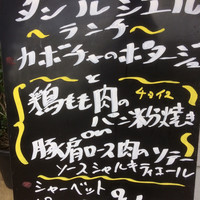 タン ル シエル
〜ランチ〜
カボチャのポタージュ
と
鶏もも肉の チョイス
パン粉焼き
or
豚肩ロース肉のソテー
ソースシャルキティエール
シャーベット